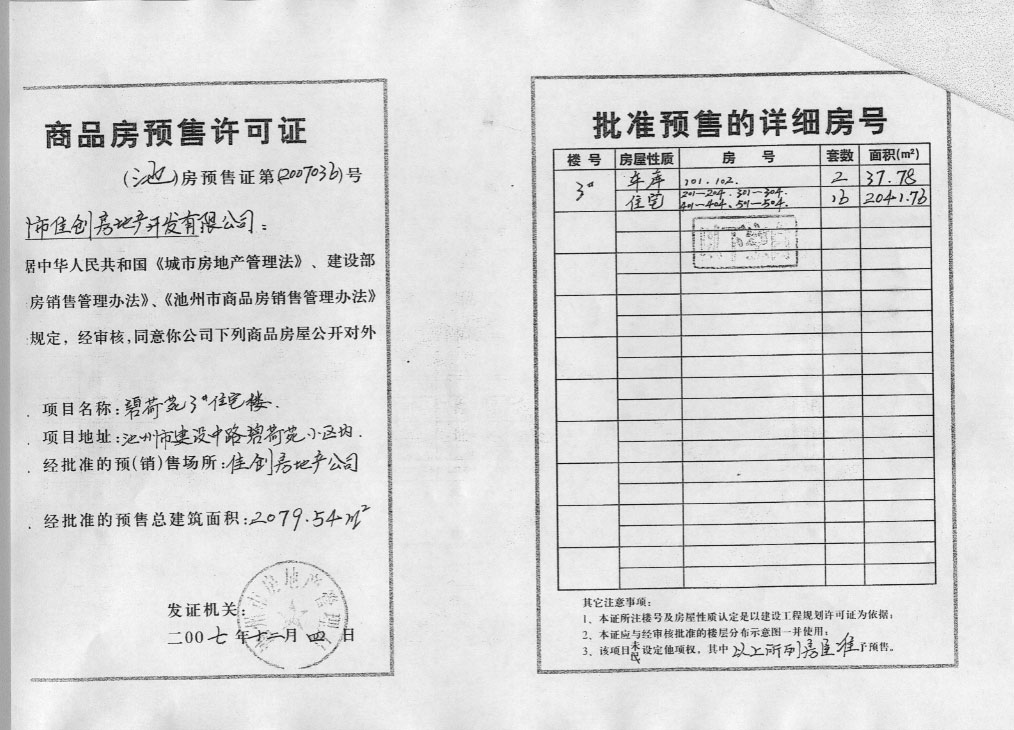 商品房预售许可证
(池)房预售证第(2007036)号
市佳创房地产开发有限公司:
据中华人民共和国《城市房地产管理法》、建设部
房销售管理办法》、《池州市商品房销售管理办法》
规定,经审核,同意你公司下列商品房屋公开对外
项目名称:碧荷苑3#住宅楼.
项目地址:池州市建设中路碧荷苑小区内.
经批准的预(销)售场所:佳创房地产公司
经批准的预售总建筑面积:2079.54m²
发证机关:
二00七年十二月四日
批准预售的详细房号
楼号 房屋性质 房号 套数 面积(m²)
3# 车库 101.102. 2 37.78
住宅 201—204.301—304. 401—404.501—504. 16 2041.76
以下空白
其它注意事项:
1、本证所注楼号及房屋性质认定是以建设工程规划许可证为依据;
2、本证应与经审核批准的楼层分布示意图一并使用;
3、该项目未设定他项权,其中以上所列房屋准予预售。